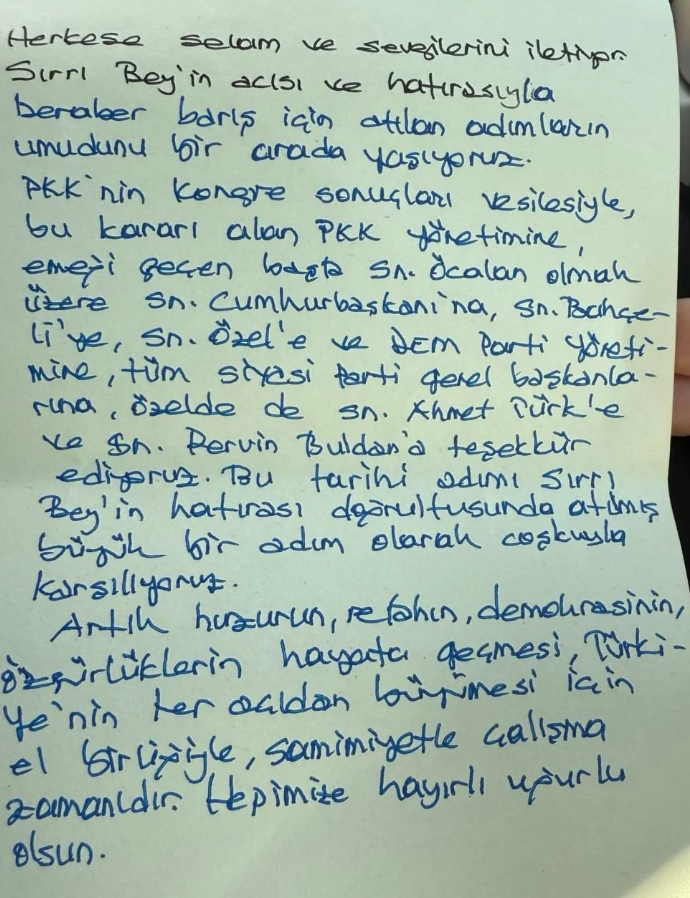 Herkese selam ve sevgilerini iletiyor.
Sırrı Bey'in acısı ve hatırasıyla
beraber barış için atılan adımların
umudunu bir arada yaşıyoruz.
PKK'nin kongre sonuçları vesilesiyle,
bu kararı alan PKK yönetimine,
emeği geçen başta Sn. Öcalan olmak
üzere Sn. Cumhurbaşkanı'na, Sn. Bahçe-
li'ye, Sn. Özel'e ve DEM Parti yöneti-
mine, tüm siyasi parti genel başkanla-
rına, özelde de Sn. Ahmet Türk'e
ve Sn. Pervin Buldan'a teşekkür
ediyoruz. Bu tarihi adımı Sırrı
Bey'in hatırası doğrultusunda atılmış
büyük bir adım olarak coşkuyla
karşılıyoruz.
Artık huzurun, refahın, demokrasinin,
özgürlüklerin hayata geçmesi, Türki-
ye'nin her açıdan büyümesi için
el birliğiyle, samimiyetle çalışma
zamanıdır. Hepimize hayırlı uğurlu
olsun.